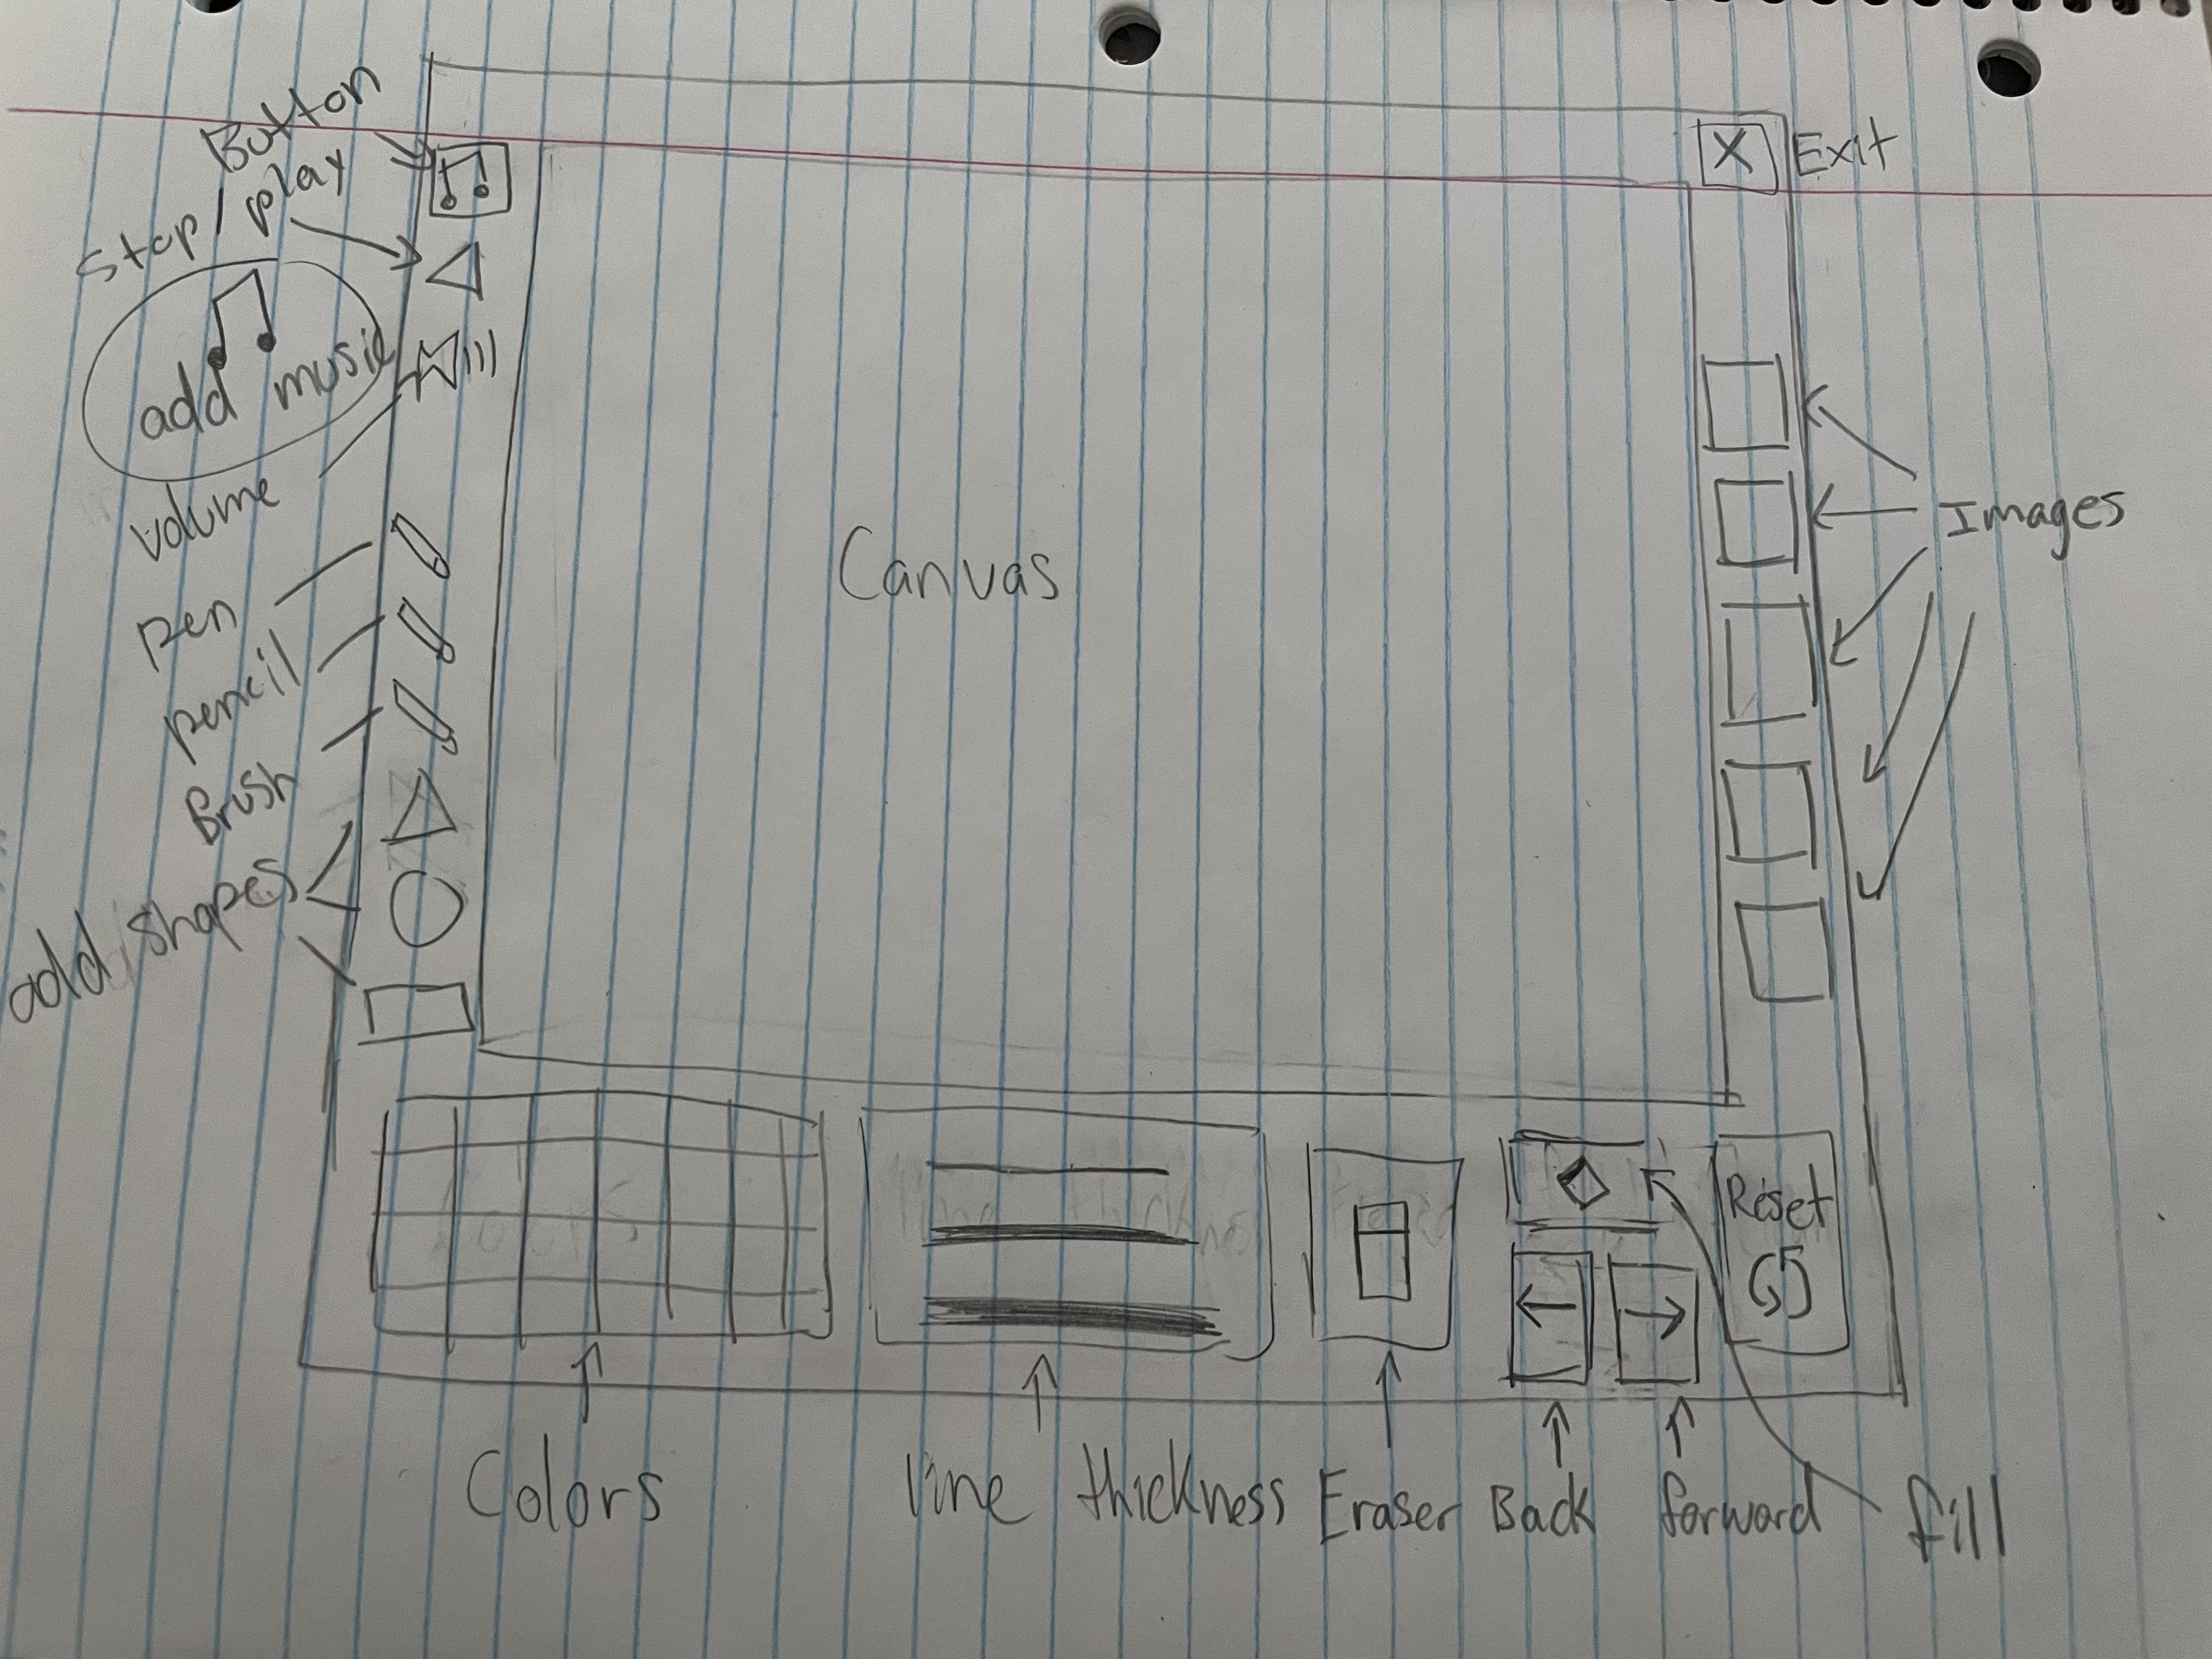 Button
stop/play
add music
volume
Pen
pencil
Brush
add shapes
Canvas
X
Exit
Images
Reset
Colors
line thickness
Eraser
Back
forward
fill